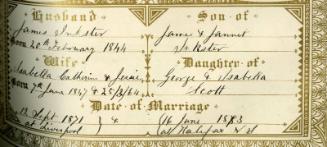 Husband
Son of
James Inkster
James & Jannet
Born 20th February 1844
Inkster
Wife
Daughter of
Isabella Catherine & Jessie
George & Isabella
Born 7th June 1847 & 25/3/64
Scott
Date of Marriage
Sept 1871 &
16 June 1883
at Liverpool
at Halifax